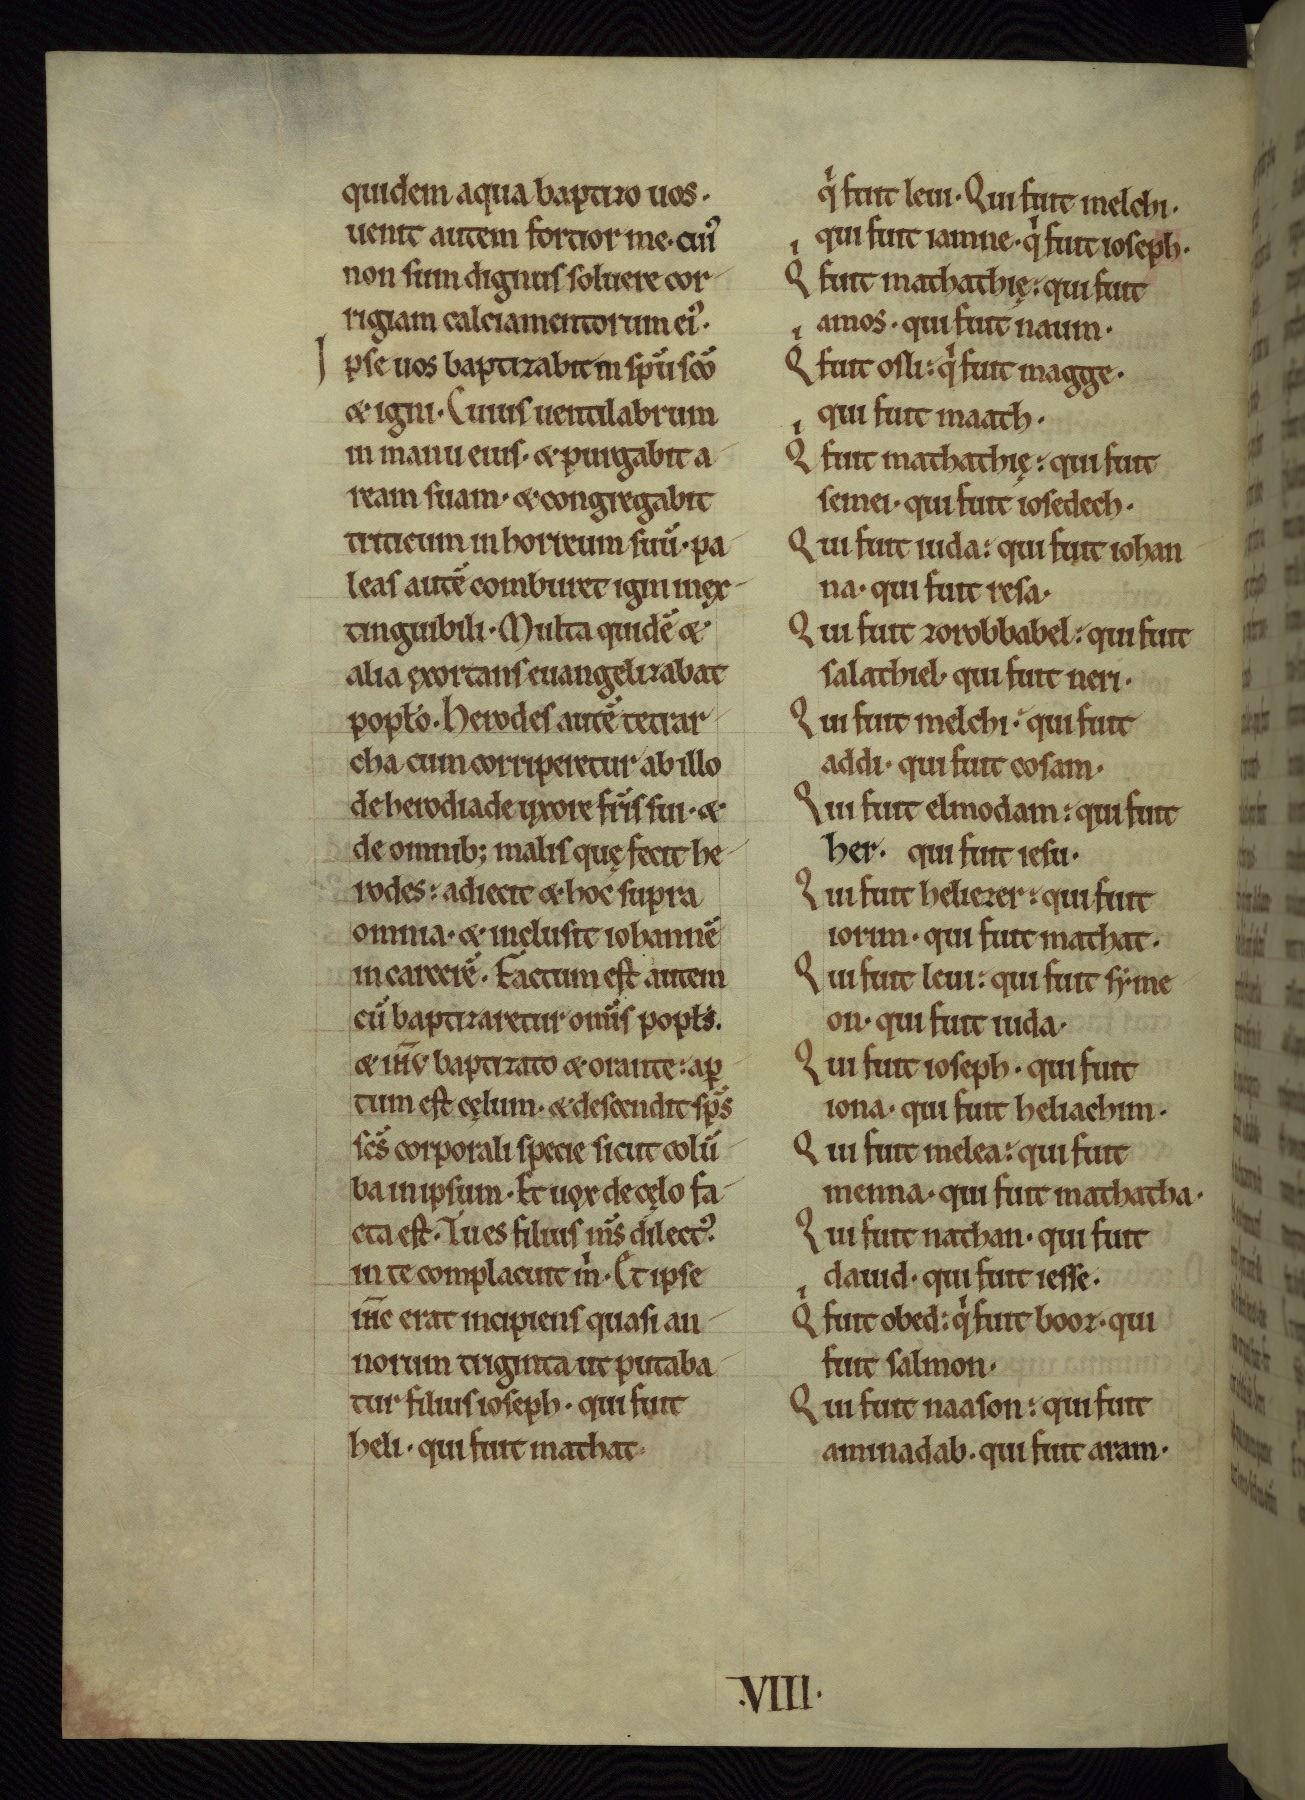 quidem aqua baptizo uos·
uenit autem fortior me· cui᾽
non sum dignus soluere cor-
rigiam calciamentorum ei᾽·
Ipse uos baptizabit in sp̅u sc̅o
& igni· Cuius uentilabrum
in manu eius· & purgabit a-
ream suam· & congregabit
triticum in horreum suu̅· pa-
leas aute̅ comburet igni inex-
tinguibili· Multa quide̅ &
alia exortans euangelizabat
popl̅o· Herodes aute̅ tetrar-
cha cum corriperetur ab illo
de herodiade uxore fr̅is sui· &
de omnib; malis quę fecit he-
rodes: adiecit & hoc supra
omnia· & inclusit iohanne̅
in carcere̅· Factum est autem
cu̅ baptizaretur omn̅is popl̅s.
& ih̅u baptizato & orante: ap̲-
tum est cęlum· & descendit sp̅s
sc̅s corporali specie sicut colu̅-
ba in ipsum· Et uox de cęlo fa-
cta est· Tu es filius m̅s dilect᾽·
in te complacuit m̅· Et ipse
ih̅c erat incipiens quasi an-
norum triginta ut putaba-
tur filius ioseph· qui fuit
heli· qui fuit mathat·
qⁱ fuit leui· Qui fuit melchi·
qui fuit iamne· qⁱ fuit ioseph·
Qⁱ fuit mathathię: qui fuit
amos· qui fuit naum·
Qⁱ fuit osli: qⁱ fuit magge·
qui fuit maath·
Qⁱ fuit mathathię: qui fuit
semei· qui fuit iosedech·
Qui fuit iuda: qui fuit iohan-
na· qui fuit resa·
Qui fuit zorobbabel: qui fuit
salathiel· qui fuit neri·
Qui fuit melchi: qui fuit
addi· qui fuit cosam·
Qui fuit elmodam: qui fuit
her· qui fuit iesu·
Qui fuit heliezer: qui fuit
iorim· qui fuit mathat·
Qui fuit leui: qui fuit syme-
on· qui fuit iuda·
Qui fuit ioseph· qui fuit
iona· qui fuit heliachim·
Qui fuit melea: qui fuit
menna· qui fuit mathatha·
Qui fuit nathan· qui fuit
dauid· qui fuit iesse·
Qⁱ fuit obed: qⁱ fuit booz· qui
fuit salmon·
Qui fuit naason: qui fuit
aminadab· qui fuit aram·
·VIII·